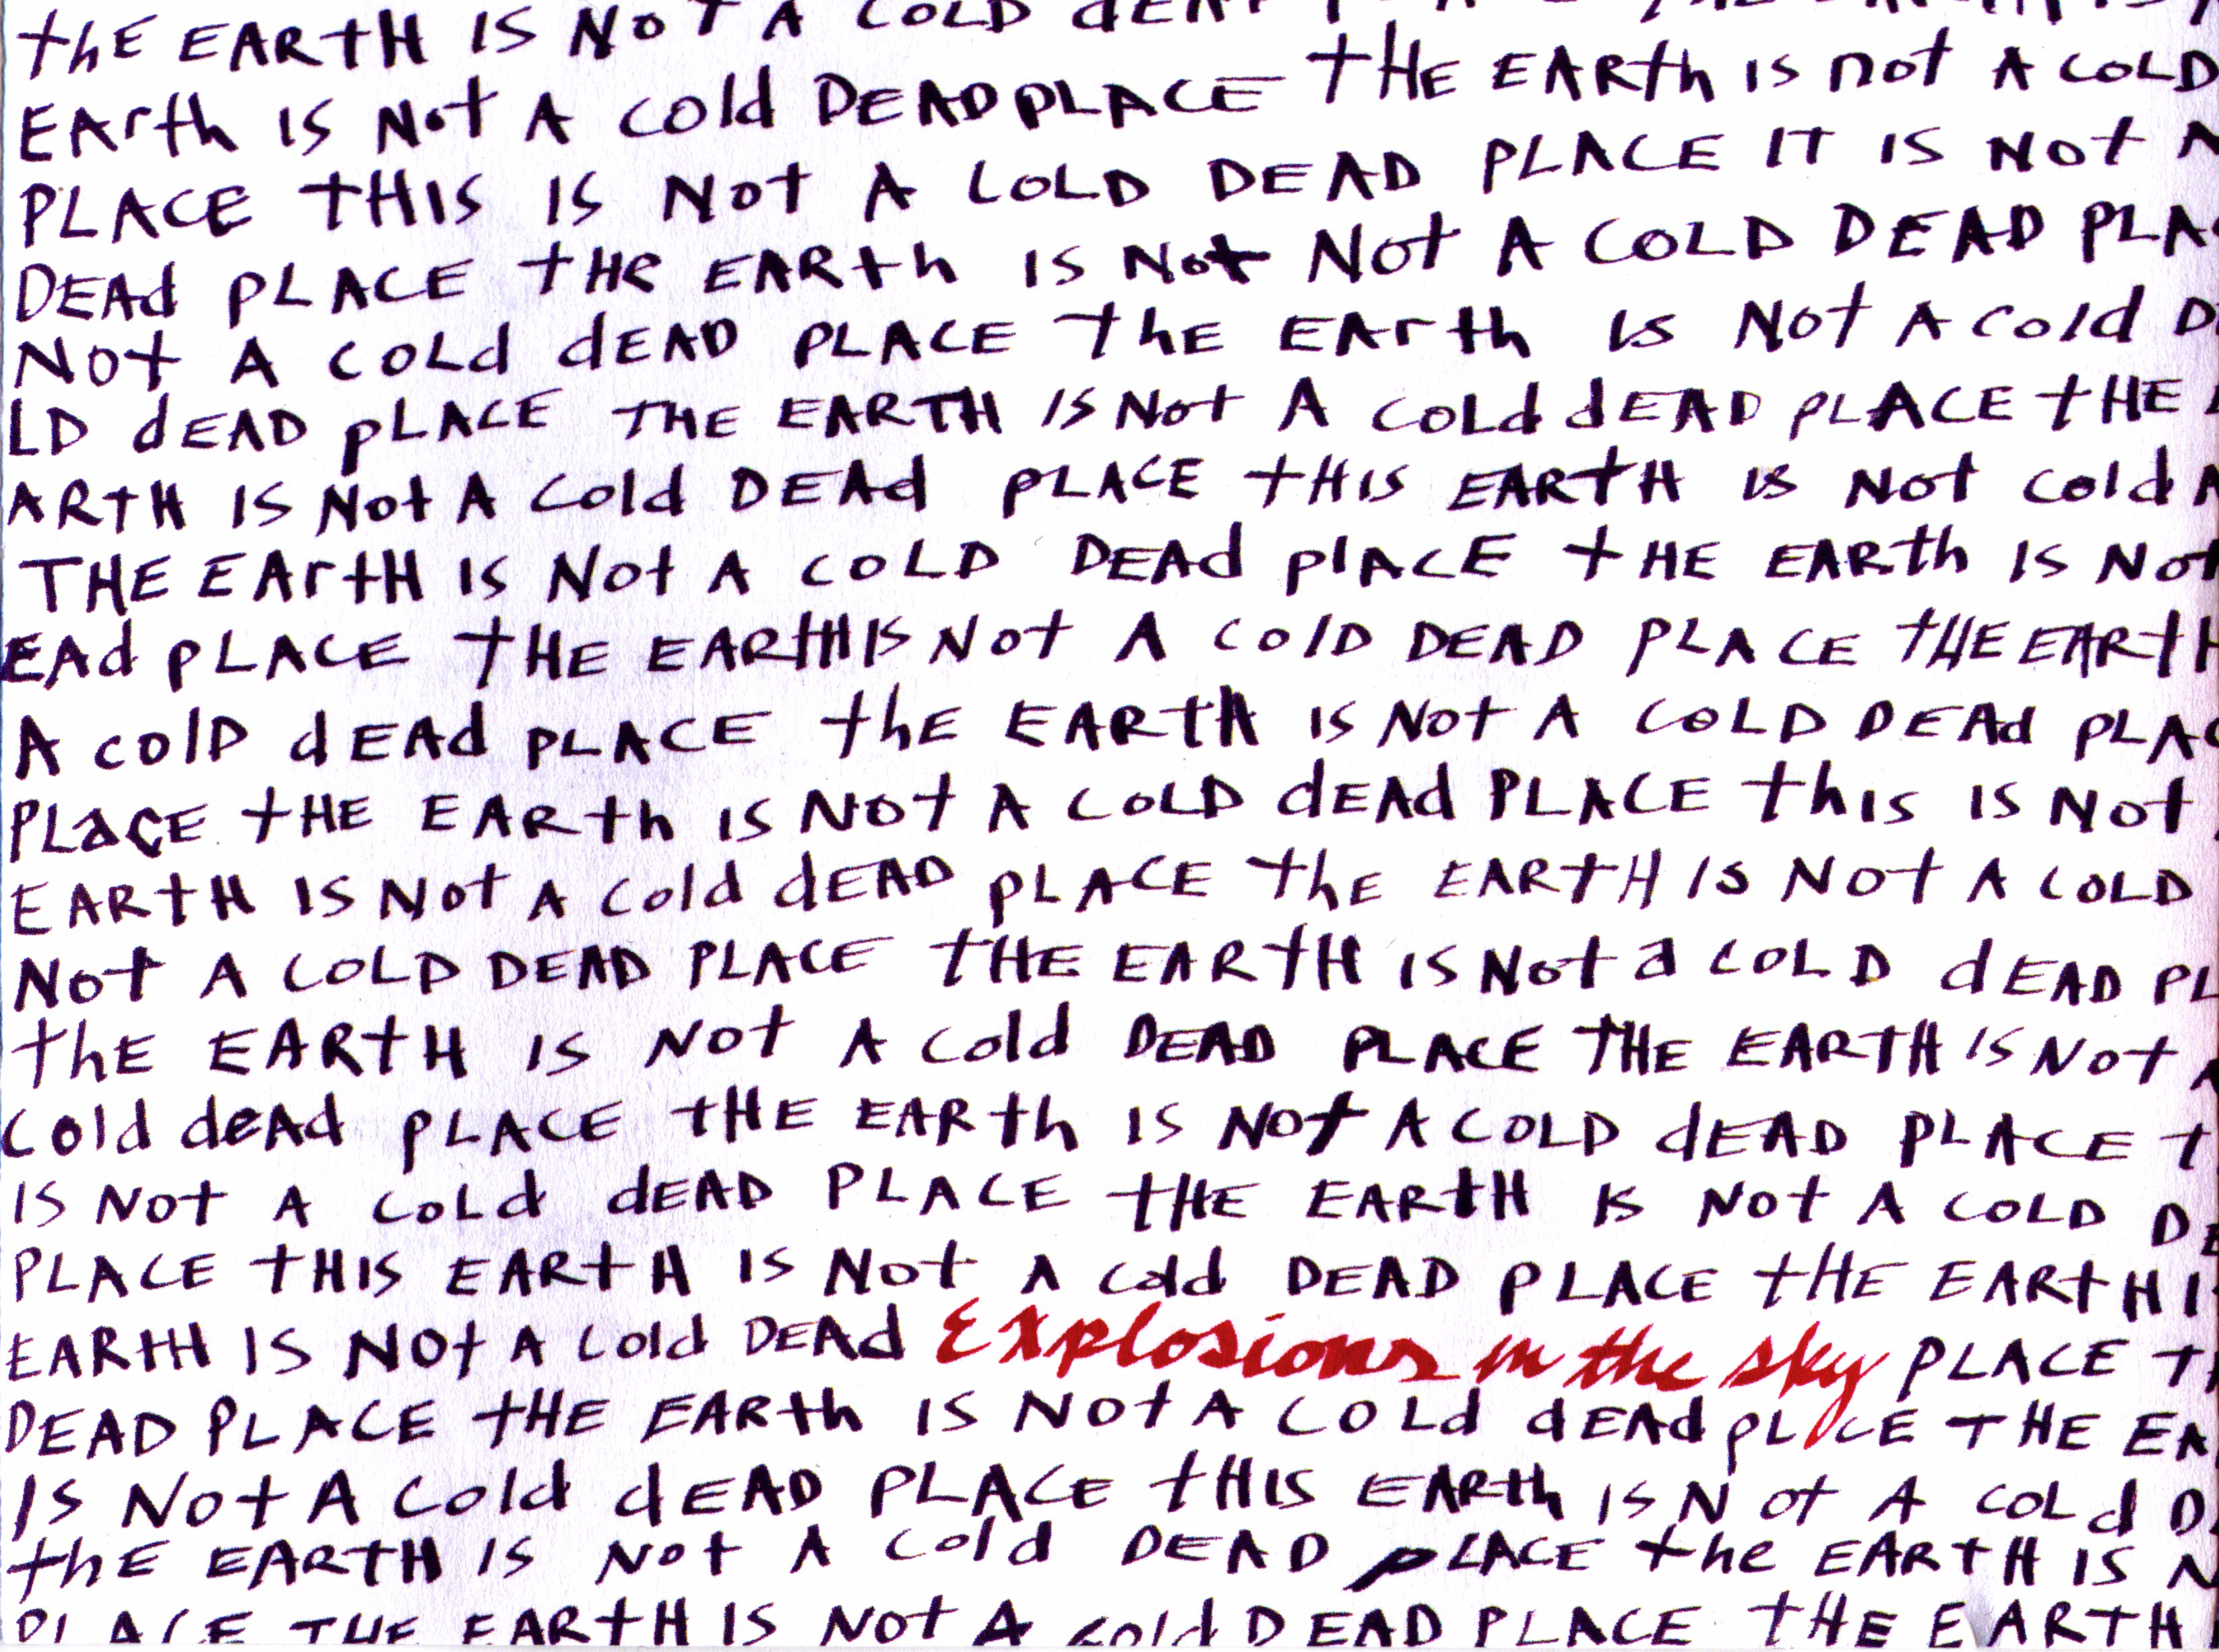 thE EARtH IS NoT A COLD dEA
EArth IS Not A cold DEAD PLACE tHE EARth is not A COLD
PLACE tHIS IS Not A COLD DEAD PLACE IT IS Not
DEAd PLACE tHE EARth IS Not Not A COLD DEAD PLA
Not A COLd dEAD PLACE thE EArth is Not A cold D
LD dEAD pLACE THE EARTH IS Not A COLd dEAD PLACE tHE
ARTH IS Not A Cold DEAd PLACE tHIS EARtH is Not Cold
THE EArtH IS Not A COLD DEAd plACE tHE EARth IS Not
EAd pLACE tHE EARtH IS Not A ColD DEAD PLACE tHE EARtH
A colD dEAd PLACE thE EARtH IS Not A COLD DEAd PLAC
PLaCE tHE EARth IS Not A COLD dEAd PLACE this IS Not
EARtH IS Not A Cold dEAD pLACE thE EARtH IS Not A COLD
Not A COLD DEAD PLACE tHE EARtH IS Not a COLD dEAD PL
thE EARtH IS Not A Cold DEAD PLACE THE EARTH IS Not
Cold deAd pLACE tHE EARth IS Not A COLD dEAD PLACE t
IS Not A CoLd dEAD PLACE tHE EARtH IS Not A COLD DE
PLACE tHIS EARtH IS Not A Cold DEAD PLACE tHE EARtH I
EARtH IS NOt A Cold DEAd Explosions in the sky PLACE T
DEAD PLACE tHE EARth IS Not A COLd dEAd pLACE THE EA
IS Not A Cold dEAD PLACE tHIS EARth IS Not A COLd D
thE EARtH IS Not A Cold DEAD pLACE the EARtH IS N
PLACE THE EARtH IS Not A cold DEAD PLACE tHE EARTH